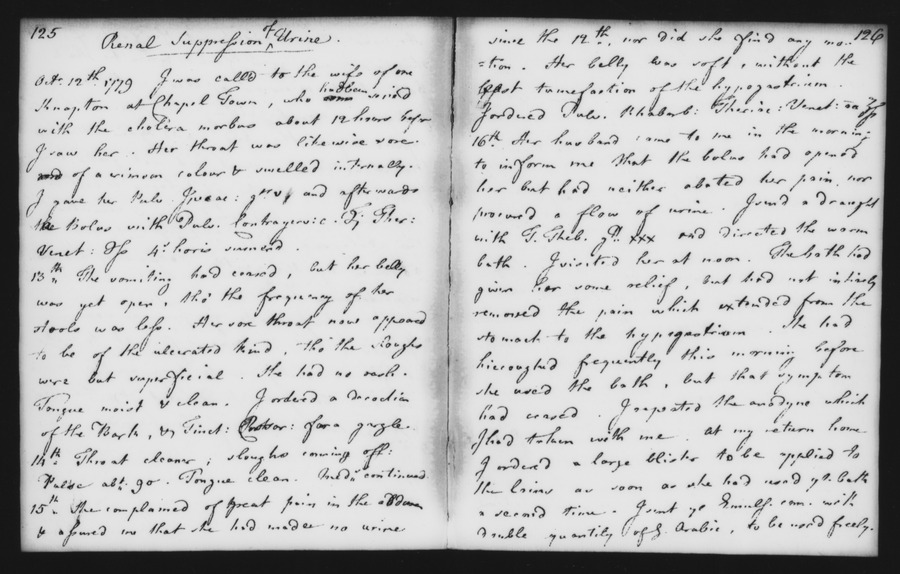 125
Renal Suppression of Urine.
Oct. 12th. 1779 I was call'd to the wife of one
Knapton at Chapel Town, who had been seized
with the cholera morbus about 12 hours before
I saw her. Her throat was likewise sore
of a crimson colour & swelled internally.
I gave her Pulv. Ipecac: gr. v, and afterwards
the Bolus with Pulv. Contrayerv. c. ℈j Ther:
Venet: ʒss 4is horis sumend.
13th. The vomiting had ceased, but her belly
was yet open, tho' the frequency of her
stools was less. Her sore throat now appeared
to be of the ulcerated kind, tho' the sloughs
were but superficial. She had no rash.
Tongue moist & clean. I ordered a decoction
of the Bark, & Tinct: for a gargle.
14th. Throat cleaner; sloughs coming off:
Pulse abt. 90. Tongue clean. Meda. continued.
15th. She complained of great pain in the abdomen
& assured me that she had made no urine
126
since the 12th, nor did she find any mo-
=tion. Her belly was soft, without the
least tumefaction of the hypogastrium.
I ordered Pulv. Rhabarb: Theriac: Venet: an ʒss
16th. Her husband came to me in the morning
to inform me that the bolus had opened
her but had neither abated her pain, nor
procured a flow of urine. I send a draught
with T. Theb. gtt xxx and directed the warm
bath. I visited her at noon. The bath had
given her some relief, but had not intirely
removed the pain which extended from the
stomach to the hypogastrium. She had
hiccoughed frequently this morning before
she used the bath, but that symptom
had ceased. I repeated the anodyne which
I had taken with me. At my return home
I ordered a large blister to be applied to
the loins as soon as she had used ye. bath
a second time. I sent ye Emuls. com. with
double quantity of G. Arabic, to be used freely.